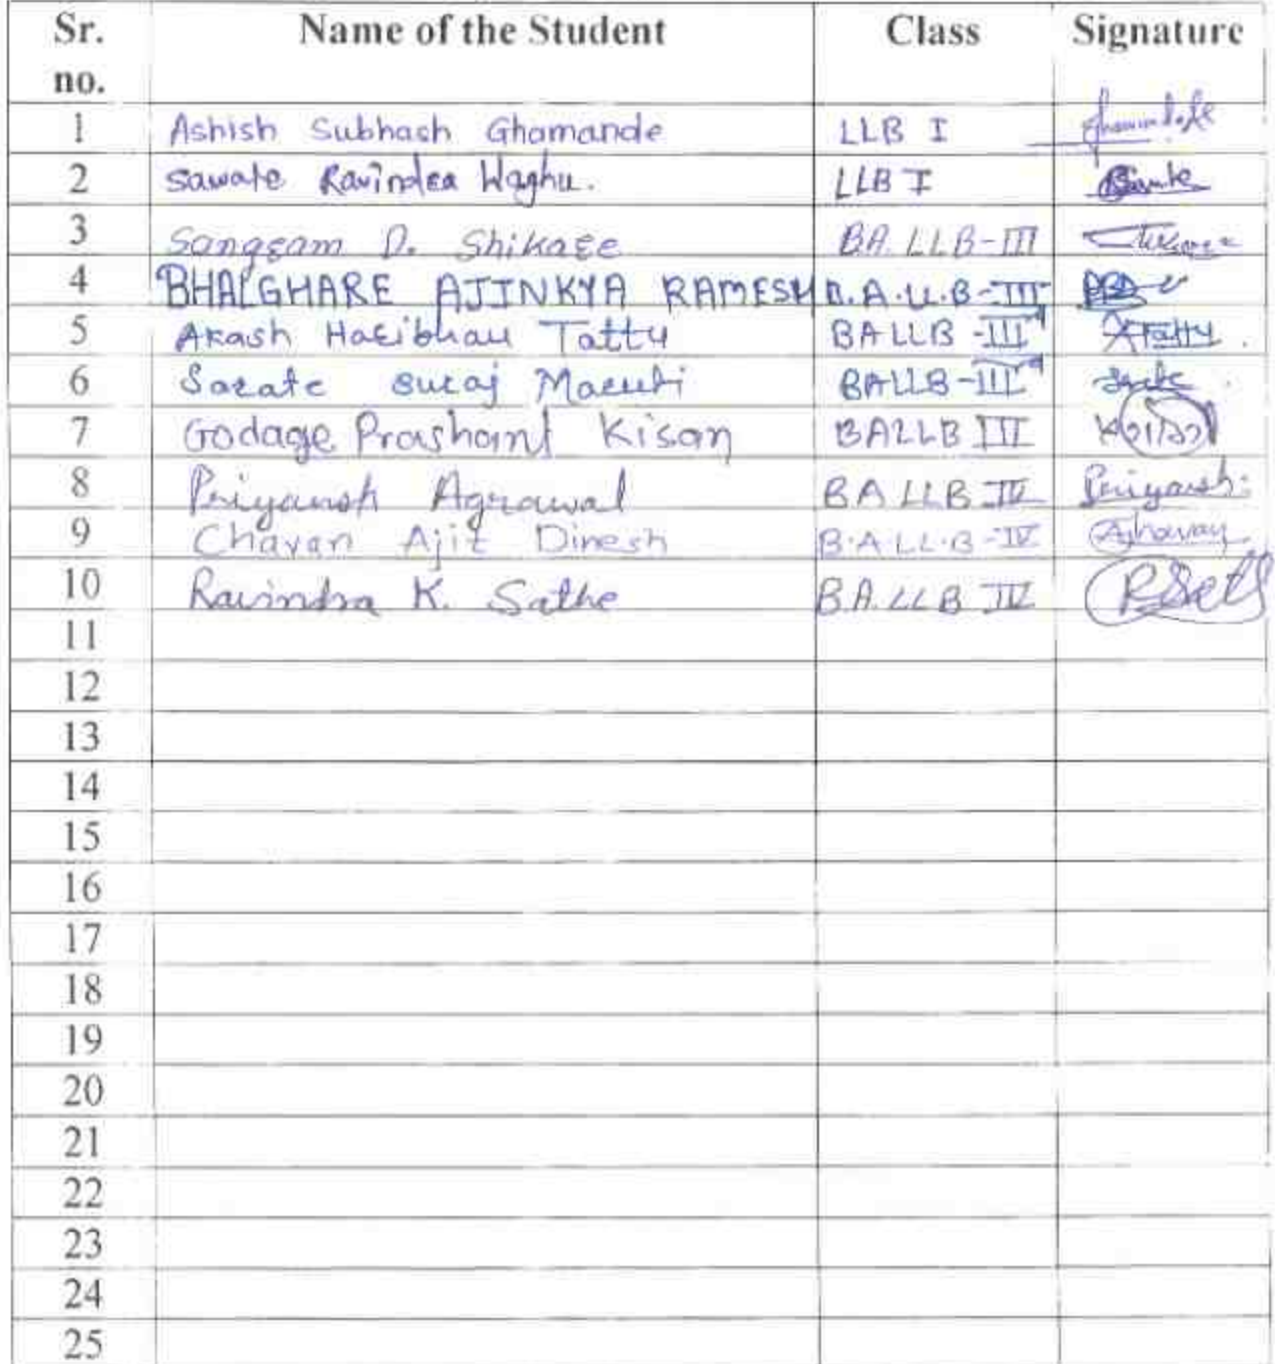 Sr. no. Name of the Student Class Signature
1 Ashish Subhash Ghamande LLB I
2 Sawate Ravindra Waghu. LLB I
3 Sangram D. Shikare BA. LLB-III
4 BHALGHARE AJINKYA RAMESH B.A.LL.B-III
5 Akash Haribhau Tatty BALLB-III ATatty.
6 Sarate Suraj Maruti BALLB-III
7 Godage Prashant Kisan BALLB III
8 Priyansh Agrawal BA LLB IV Priyansh.
9 Chavan Ajit Dinesh B.A.LL.B-IV
10 Ravindra K. Sathe B.A.LLB IV
11
12
13
14
15
16
17
18
19
20
21
22
23
24
25